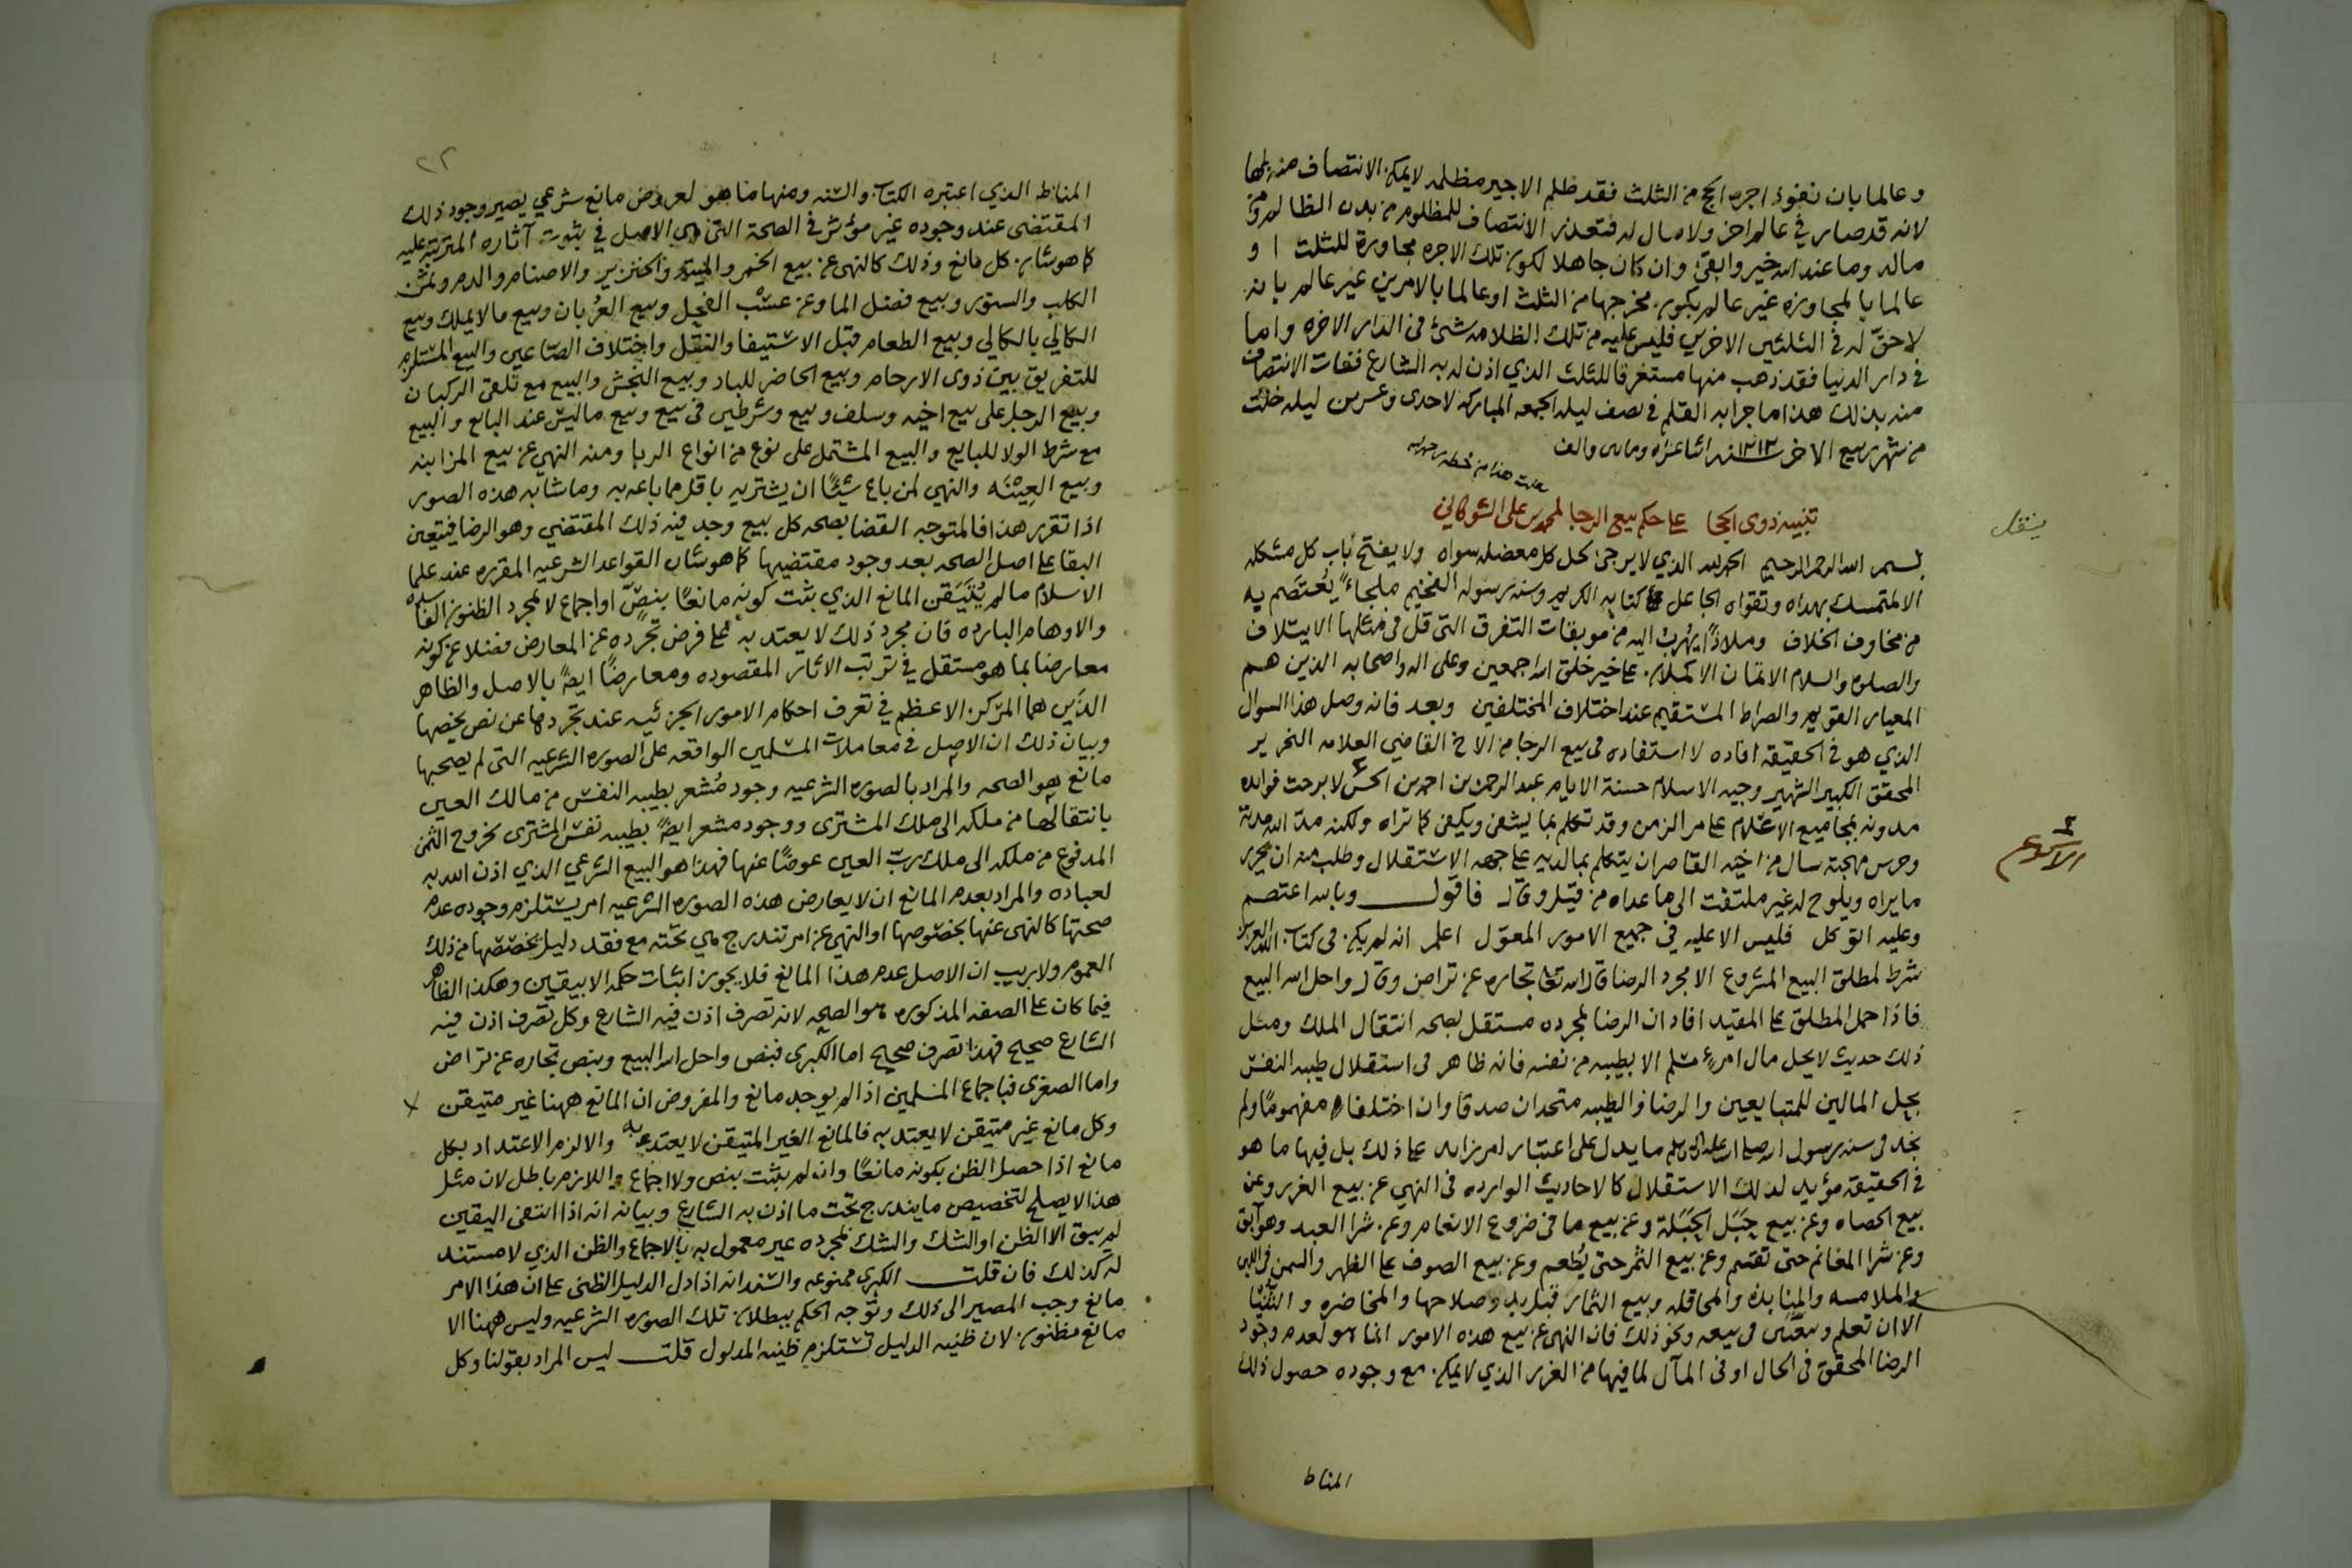 وعالما بان نفوذ اجره الحج من الثلث فقد ظلم الاجير مظلمه لا يمكن الانتصاف منه بمثلها
لانه قد صار في عالم اخر ولا مال له فتعذر الانتصاف للمظلوم من بدن الظالم ومن
ماله وما عند الله خير وابقى وان كان جاهلا لكون تلك الاجره مجاوزة للثلث او
عالما بالمجاوزه غير عالم بكون مخرجها من الثلث او عالما بالامرين غير عالم بانه
لا حقّ له في الثلثين الاخرين فليس عليه من تلك الظلامه شئ في الدار الاخره واما
في دار الدنيا فقد ذهب منها مستغرقا للثلث الذي اذن له به الشارع ففات الانتصاف
منه بذلك هذا ما جرا به القلم في نصف ليلة الجمعه المباركه لاحدى وعشرين ليله خلت
من شهر ربيع الاخر سنه ١٢١٢ اثنا عشره ومايتين والف
نقلت هذا من خطه رحمه الله
تنبيه ذوى الحجا على حكم بيع الرجا لمحمد بن على الشوكاني
ينقل
بسم الله الرحمن الرحيم الحمد لله الذي لا يرجى لحل كل معضله سواه ولا يفتح باب كل مشكله
الا لمتمسك بهداه وتقواه الجاعل كتابه الكريم وسنة رسوله الفخيم ملجاءً يُعتصم به
من مخاوف الخلاف وملاذًا يُهرب اليه من موبقات التفرق التى قل في مثلها الايتلاف
والصلوه والسلام الاتمان الاكملان على خير خلق الله اجمعين وعلى اله واصحابه الذين هم
المعيار القويم والصراط المستقيم عند اختلاف المختلفين وبعد فانه وصل هذا السوال
الذي هو في الحقيقه افاده لا استفاده في بيع الرجا من الاخ القاضي العلامه النحرير
المحقق الكبير الشهير وجيه الاسلام حسنة الايام عبد الرحمن بن احمد بن الحسن لا برحت فوايده
مدونه بمجاميع الاعلام على مر الزمن وقد تكلم بما يشفى ويكفى كما تراه ولكنه مدّ الله مدته
وحرس مهجته سال من اخيه القاصر ان يتكلم بما لديه على جهه الاستقلال وطلب منه ان يحرر
ما يراه ويلوح له غير ملتفت الى ما عداه من قيل وقال فاقول وبالله اعتصم
وعليه اتوكل فليس الا عليه في جميع الامور المعوّل اعلم انه لم يكن في كتاب الله العزيز
شرط لمطلق البيع المشروع الا مجرد الرضا قال الله تعالى تجاره عن تراض وقال واحل الله البيع
فاذا حمل المطلق على المقيد افاد ان الرضا بمجرده مستقل بصحه انتقال الملك ومثل
ذلك حديث لا يحل مال امرء مسلم الا بطيبه من نفسه فانه ظاهر في استقلال طيبه النفس
بحِل المالين للمتبايعين والرضا والطيبه متحدان صدقا وان اختلفا مفهومًا ولم
نجد في سنه رسول الله صلى الله عليه واله وسلم ما يدل على اعتبار امر زايد على ذلك بل فيها ما هو
في الحقيقه مؤيد لذلك الاستقلال كالاحاديث الوارده في النهي عن بيع الغرر وعن
بيع الحصاه وعن بيع حَبَل الحَبَلة وعن بيع ما في ضروع الانعام وعن شرا العبد وهو آبق
وعن شرا المغانم حتى تقسم وعن بيع الثمر حتى يُطعم وعن بيع الصوف على الظهر والسمن في اللبن
والملامسه والمنابذه والمحاقله وبيع الثمار قبل بدو صلاحها والمخاضره والثُنيا
الا ان تعلم في بيعه ونحو ذلك فان النهى عن بيع هذه الامور انما هو لعدم وجود
الرضا المحقق في الحال او في المآل لما فيها من الغرر الذي لا يمكن مع وجوده حصول ذلك
المناط
٢٢
المناط الذي اعتبره الكتاب والسنه ومنها ما هو لعروض مانع شرعي يصير وجود ذلك
المقتضى عند وجوده غير مؤثر في الصحة التى هي الاصل في ثبوت آثاره المترتبه عليه
كما هو شان كل مانع وذلك كالنهى عن بيع الخمر والميته والخنزير والاصنام والدم وثمن
الكلب والسنور وبيع فضل الما وعن عسْب الفحل وبيع العُربان وبيع ما لا يملك وبيع
الكالي بالكالي وبيع الطعام قبل الاستيفا والنقل واختلاف الصّاعين والبيع المستلزم
للتفريق بين ذوى الارحام وبيع الحاضر للباد وبيع النجش والبيع مع تلقى الركبان
وبيع الرجل على بيع اخيه وسلف وبيع وشرطين في بيع وبيع ما ليس عند البايع والبيع
مع شرط الولا للبايع والبيع المشتمل على نوع من انواع الربا ومنه النهي عن بيع المزابنه
وبيع العِيْنَه والنهي لمن باع شيئًا ان يشتريه باقل مما باعه به وما شابه هذه الصور
اذا تقرر هذا فالمتوجه القضا بصحه كل بيع وجد فيه ذلك المقتضي وهو الرضا فيتعين
البقا على اصل الصحه بعد وجود مقتضيها كما هو شان القواعد الشرعيه المقرره عند علما
الاسلام ما لم يُتَيَقن المانع الذي يثبت كونه مانعًا بنصٍّ او اجماع لا بمجرد الظنون الفاسده
والاوهام البارده فان مجرد ذلك لا يعتد به على فرض تجرّده عن المعارض فضلا عن كونه
معارضا بما هو مستقل في ترتب الاثار المقصوده ومعارضًا ايضًا بالاصل والظاهر
الذَين هما المرْكز الاعظم في تعرف احكام الامور الجزئيه عند تجردها عن نص يخصها
وبيان ذلك ان الاصل في معاملات المسلمين الواقعه على الصوره الشرعيه التى لم يصحبها
مانع هو الصحه والمراد بالصوره الشرعيه وجود مُشعر بطيبه النفس من مالك العين
بانتقالها من ملكه الى ملك المشترى ووجود مشعر ايضًا بطيبه نفس المشترى بخروج الثمن
المدفوع من ملكه الى ملك ربّ العين عوضًا عنها فهذا هو البيع الشرعي الذي اذن الله به
لعباده والمراد بعدم المانع ان لا يعارض هذه الصوره الشرعيه امر يستلزم وجوده عدم
صحتها كالنهى عنها بخصوصها او النهي عن امر تندرج هي تحته مع فقد دليل يخصّصها من ذلك
العموم ولا ريب ان الاصل عدم هذا المانع فلا يجوز اثبات حكمه الا بيقين وهكذا الظاهر
فيما كان على الصفه المذكوره هو الصحه لانه تصرف اذن فيه الشارع وكل تصرف اذن فيه
الشارع صحيح فهذا تصرف صحيح اما الكبرى فبنص واحل الله البيع وبنص تجاره عن تراض
واما الصغرى فباجماع المسلمين اذا لم يوجد مانع والمفروض ان المانع ههنا غير متيقن
وكل مانع غير متيقن لا يعتد به فالمانع الغير المتيقن لا يعتد به والا لزم الاعتداد بكل
مانع اذا حصل الظن بكونه مانعًا وان لم يثبت بنص ولا اجماع واللازم باطل لان مثل
هذا لا يصلح لتخصيص ما يندرج تحت ما اذن به الشارع وبيانه انه اذا انتفى اليقين
لم يبق الا الظن او الشك والشك بمجرده غير معمول به بالاجماع والظن الذي لا مستند
له كذلك فان قلت الكبرى ممنوعه والسند انه اذا دل الدليل الظنى على ان هذا الامر
مانع وجب المصير الى ذلك وتوجه الحكم ببطلان تلك الصوره الشرعيه وليس ههنا الا
مانع مظنون لان ظنيه الدليل تستلزم ظنيه المدلول قلت ليس المراد بقولنا وكل